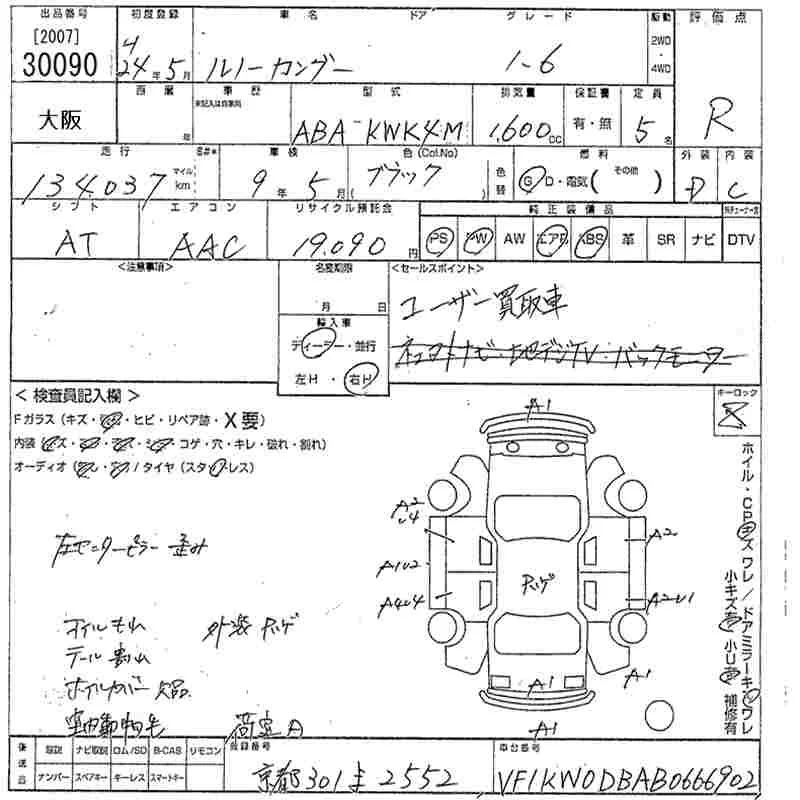 出品番号 初度登録 車名 ドア グレード 駆動 評価点
[2007] 30090 4 24年5月 ルノーカングー 1-6 2WD・4WD R
大阪 西暦 年 車歴 未記入は自家用 型式 排気量 保証書 定員
ABA-KWK4M 1,600cc 有・無 5名
走行 マイル km 車検 色(Col.No) 色替 燃料 外装 内装
134037 9年5月( ブラック ) G・D・電気( その他 ) D C
シフト エアコン リサイクル預託金 純正装備品
AT AAC 19,090円 PS PW AW エアB ABS 革 SR ナビ DTV
<注意事項> 名変期限 <セールスポイント>
月 日 ユーザー買取車
輸入車
ディーラー・並行 ネコマトナビ・地デジTV・バックモニター
左H・右H
<検査員記入欄> キーロック
Fガラス(キズ・ ・ヒビ・リペア跡・X要)
内装(キズ・ ・ ・ ・コゲ・穴・キレ・破れ・割れ)
オーディオ( ・ )/タイヤ(スタッドレス)
A1
A2 U4 A2
A102
A4U4 A2U1
ハゲ
A1 A1
A1
左センターピラー歪み
オイルもれ 外装ハゲ
テール割れ
ホイルカバー欠品
室内動物毛 荷室A
ホイル・CPキズ ワレ/ドアミラーキズ ワレ
小キズ有 小U有 補修有
後送品 取説 ナビ取説 ロム/SD B-CAS リモコン 登録番号 車台番号
ナンバー スペアキー キーレス スマートキー 京都301 2552 VF1KW0DBAB0666902